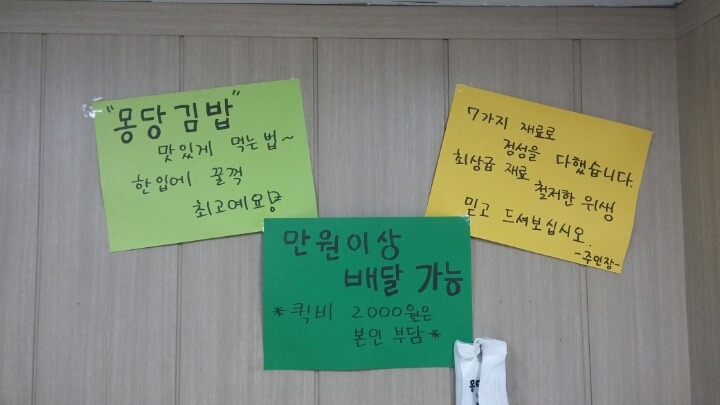 "몽당김밥"
맛있게 먹는법~
한입에 꿀꺽
최고예요
만원이상
배달 가능
*퀵비 2000원은
본인 부담*
7가지 재료로
정성을 다했습니다.
최상급 재료 철저한 위생
믿고 드셔보십시오.
-주인장-
몽당